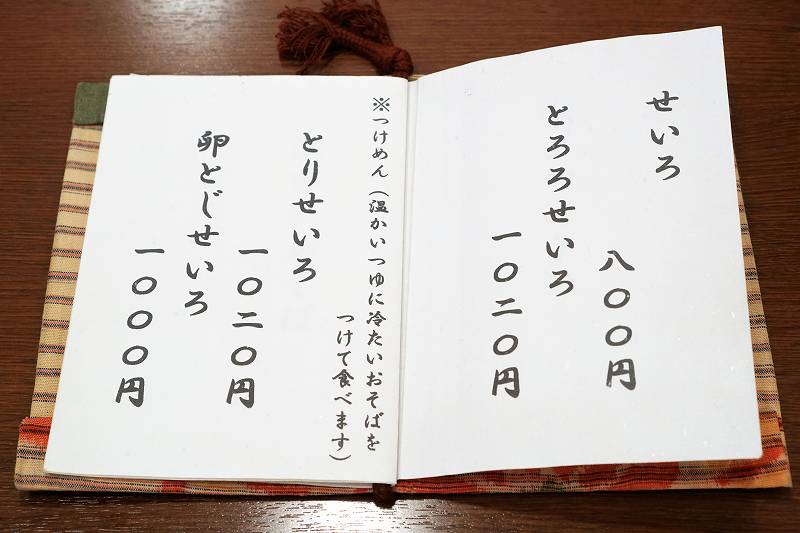 せいろ
八〇〇円
とろろせいろ
一〇二〇円
※つけめん（温かいつゆに冷たいおそばを
つけて食べます）
とりせいろ
一〇二〇円
卵とじせいろ
一〇〇〇円